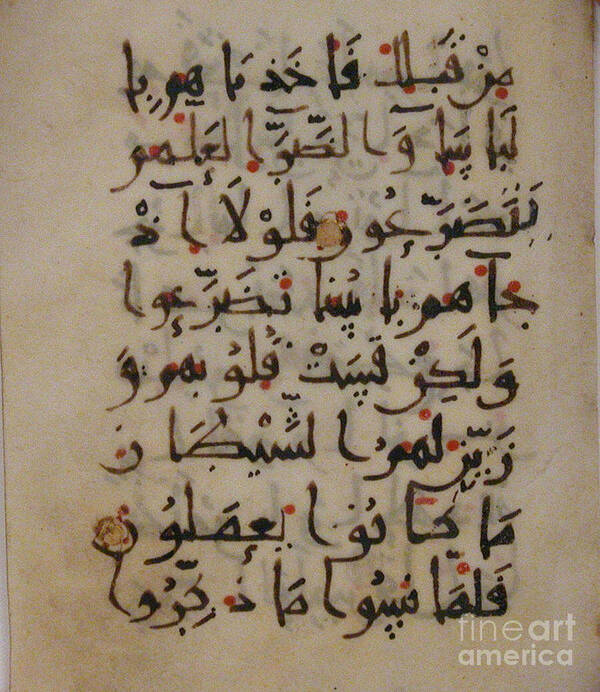 مِنْ قَبْلِكَ فَأَخَذْنَاهُم بِا
لْبَأْسَاءِ وَالضَّرَّاءِ لَعَلَّهُمْ
يَتَضَرَّعُونَ فَلَوْلَا إِذْ
جَاءَهُم بَأْسُنَا تَضَرَّعُوا
وَلَكِنْ قَسَتْ قُلُوبُهُمْ وَ
زَيَّنَ لَهُمُ الشَّيْطَانُ
مَا كَانُوا يَعْمَلُونَ
فَلَمَّا نَسُوا مَا ذُكِّرُوا
fineart
america